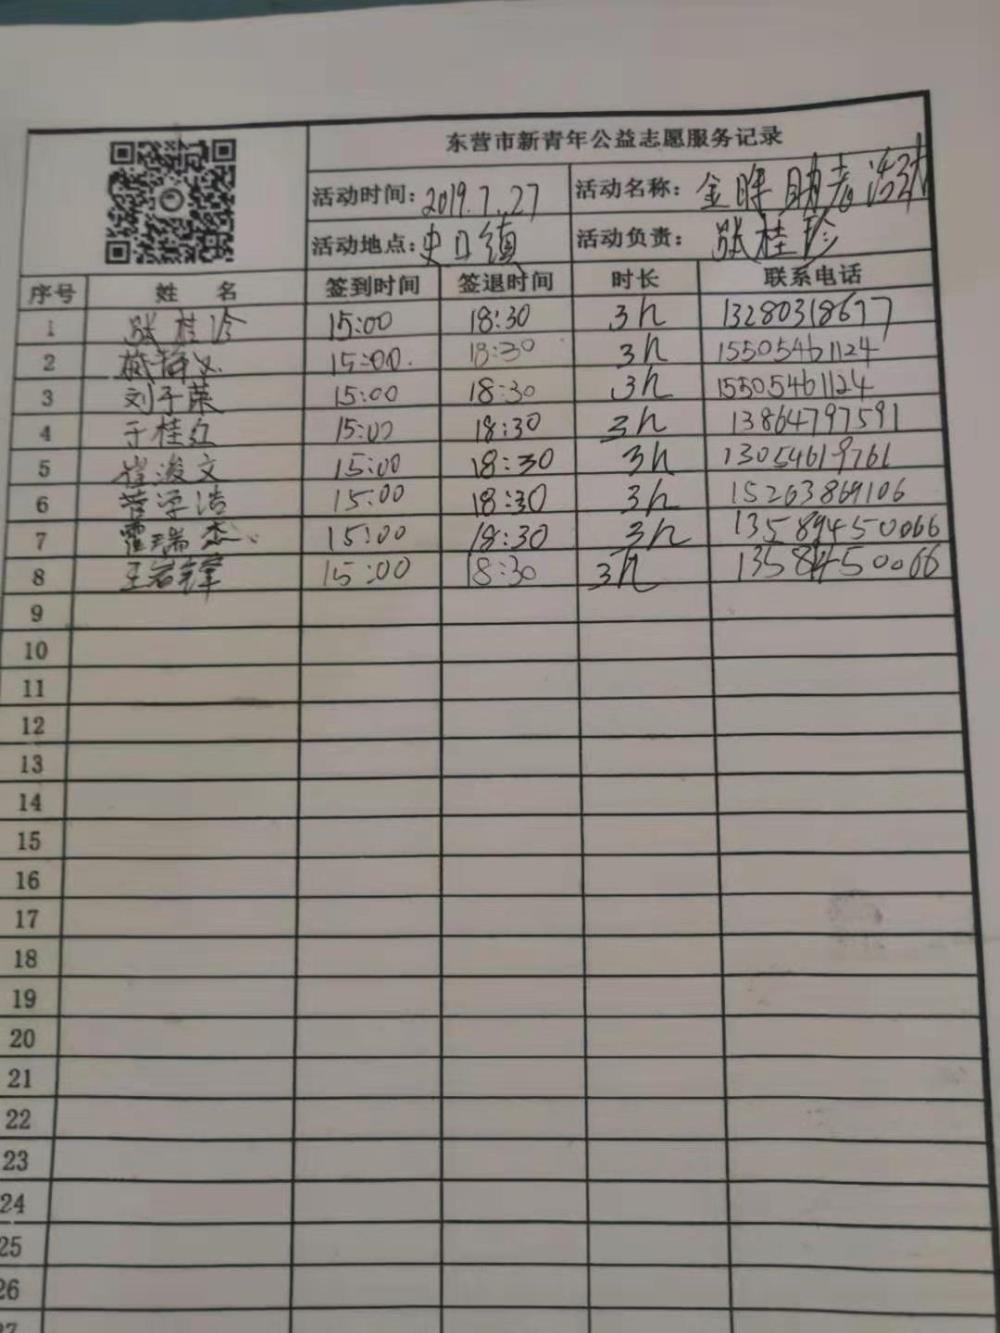 东营市新青年公益志愿服务记录
活动时间: 2019.7.27 活动名称: 金晖助老活动
活动地点: 史口镇 活动负责: 张桂珍
序号 姓 名 签到时间 签退时间 时长 联系电话
1 张桂珍 15:00 18:30 3h 13280318677
2 15:00. 18:30 3h 15505461124
3 刘子荣 15:00 18:30 3h 15505461124
4 于桂红 15:00 18:30 3h 13864797591
5 崔浚文 15:00 18:30 3h 13054619761
6 学浩 15:00 18:30 3h 15263869106
7 霍瑞杰 15:00 18:30 3h 13589450066
8 王岩锋 15:00 18:30 3h 13589450066
9
10
11
12
13
14
15
16
17
18
19
20
21
22
23
24
25
26
27